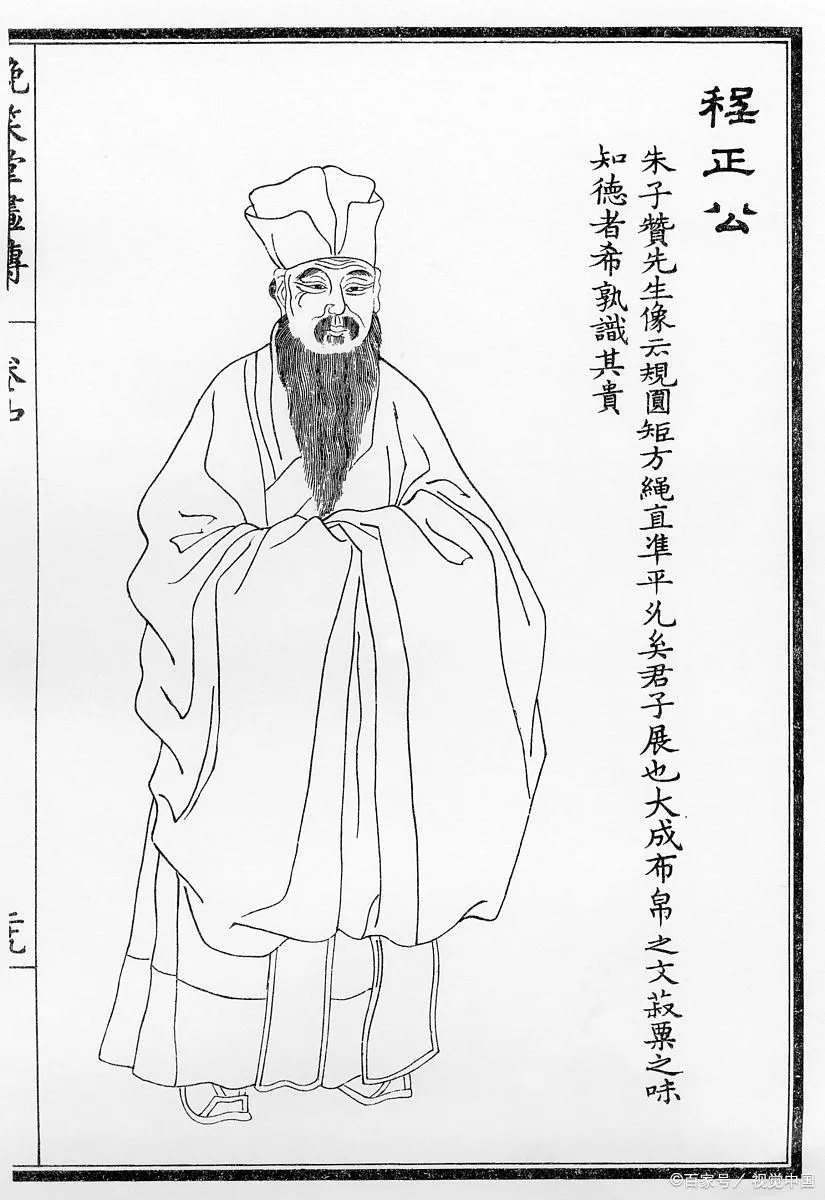 程正公
朱子贊先生像云規圓矩方繩直準平允矣君子展也大成布帛之文菽粟之味
知德者希孰識其貴
晚笑堂畫傳
©百家号／视觉中国